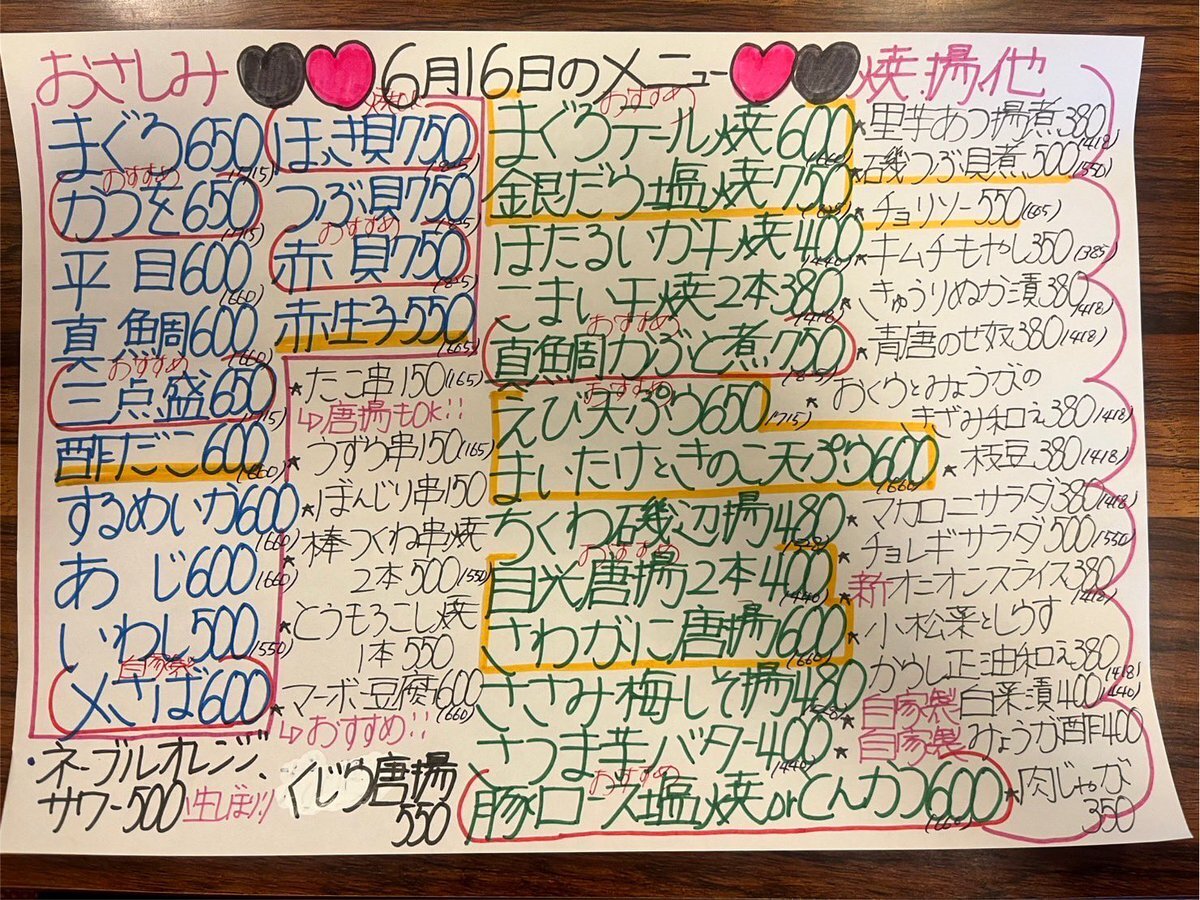 おさしみ
6月16日のメニュー
焼.揚.他
まぐろ650
(715)
おすすめ
かつを650
(715)
平目600
(660)
真鯛600
(660)
おすすめ
三点盛650
(715)
酢だこ600
(660)
するめいか600
(660)
あじ600
(660)
いわし500
(550)
自家製
〆さば600
ほっき貝750
(825)
つぶ貝750
(825)
おすすめ
赤貝750
(825)
赤生子550
(605)
★たこ串150(165)
↳唐揚もOK!!
★うずら串150(165)
★ぼんじり串150
★棒つくね串焼
2本500(550)
★とうもろこし焼
1本550
★マーボ豆腐600
(660)
↳おすすめ!!
・ネーブルオレンジ
サワー500 生しぼり!!
くじら唐揚
550
おすすめ
まぐろテール焼600
(660)
銀だら塩焼750
(825)
ほたるいか干焼400
(440)
こまい干焼2本380
(418)
おすすめ
真鯛かぶと煮750
(825)
おすすめ
えび天ぷら650
(715)
まいたけときのこ天ぷら600
(660)
ちくわ磯辺揚480
(528)
おすすめ
目光唐揚2本400
(440)
さわがに唐揚600
(660)
ささみ梅しそ揚480
(528)
さつま芋バター400
(440)
おすすめ
豚ロース塩焼orとんかつ600
★里芋あつ揚煮380
(418)
★磯つぶ貝煮500
(550)
★チョリソー550(605)
★キムチもやし350(385)
★きゅうりぬか漬380
(418)
★青唐のせ奴380(418)
★おくらとみょうがの
きざみ和え380(418)
★枝豆380(418)
★マカロニサラダ380(418)
★チョレギサラダ500
(550)
★新オニオンスライス380
(418)
★小松菜としらす
からし正油和え380
(418)
★自家製白菜漬400(440)
★自家製みょうが酢400
★肉じゃが
350